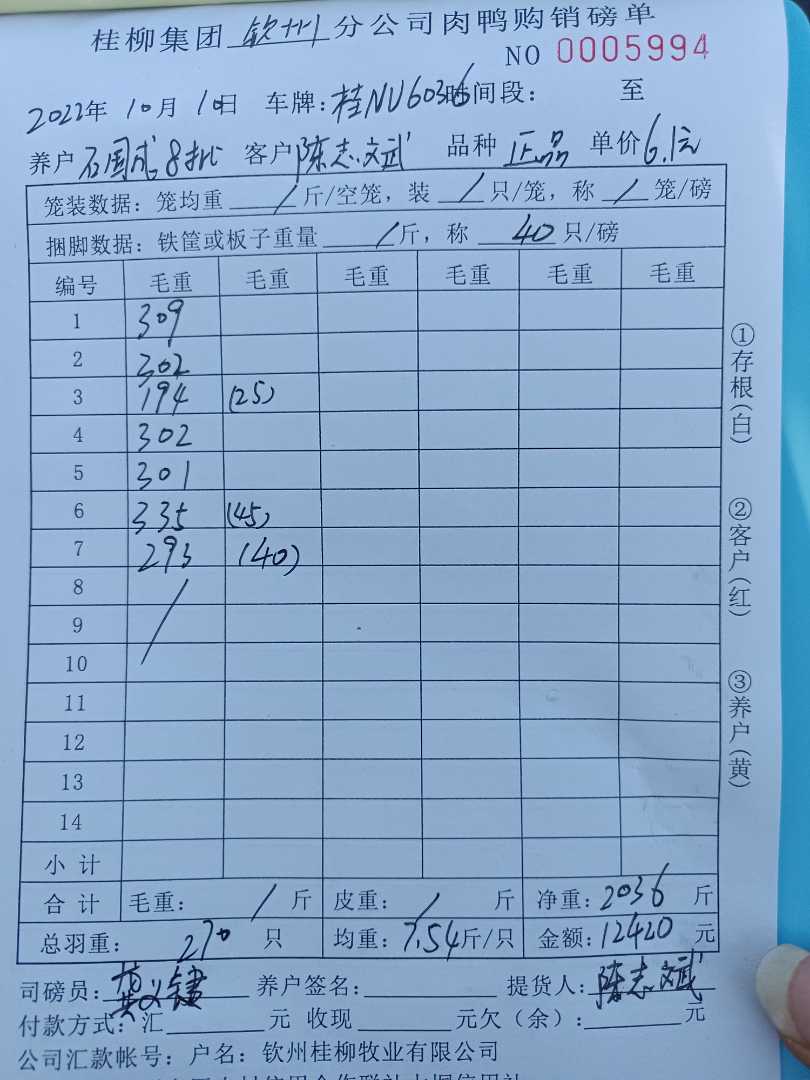 桂柳集团 钦州 分公司肉鸭购销磅单
NO 0005994
2022年 10月 10日 车牌:桂NU6036 时间段: 至
养户 石国成8批 客户 陈志斌 品种 正品 单价 6.1元
笼装数据:笼均重 / 斤/空笼,装 / 只/笼,称 / 笼/磅
捆脚数据:铁筐或板子重量 / 斤,称 40 只/磅
编号 毛重 毛重 毛重 毛重 毛重 毛重
1 309
2 302
3 194 (25)
4 302
5 301
6 335 (45)
7 293 (40)
8 /
9
10
11
12
13
14
小计
合计 毛重: / 斤 皮重: / 斤 净重:2036 斤
总羽重: 270 只 均重:7.54斤/只 金额:12420元
司磅员: 养户签名: 提货人:陈志斌
付款方式:汇 元 收现 元欠(余): 元
公司汇款帐号:户名:钦州桂柳牧业有限公司
①存根(白)
②客户(红)
③养户(黄)